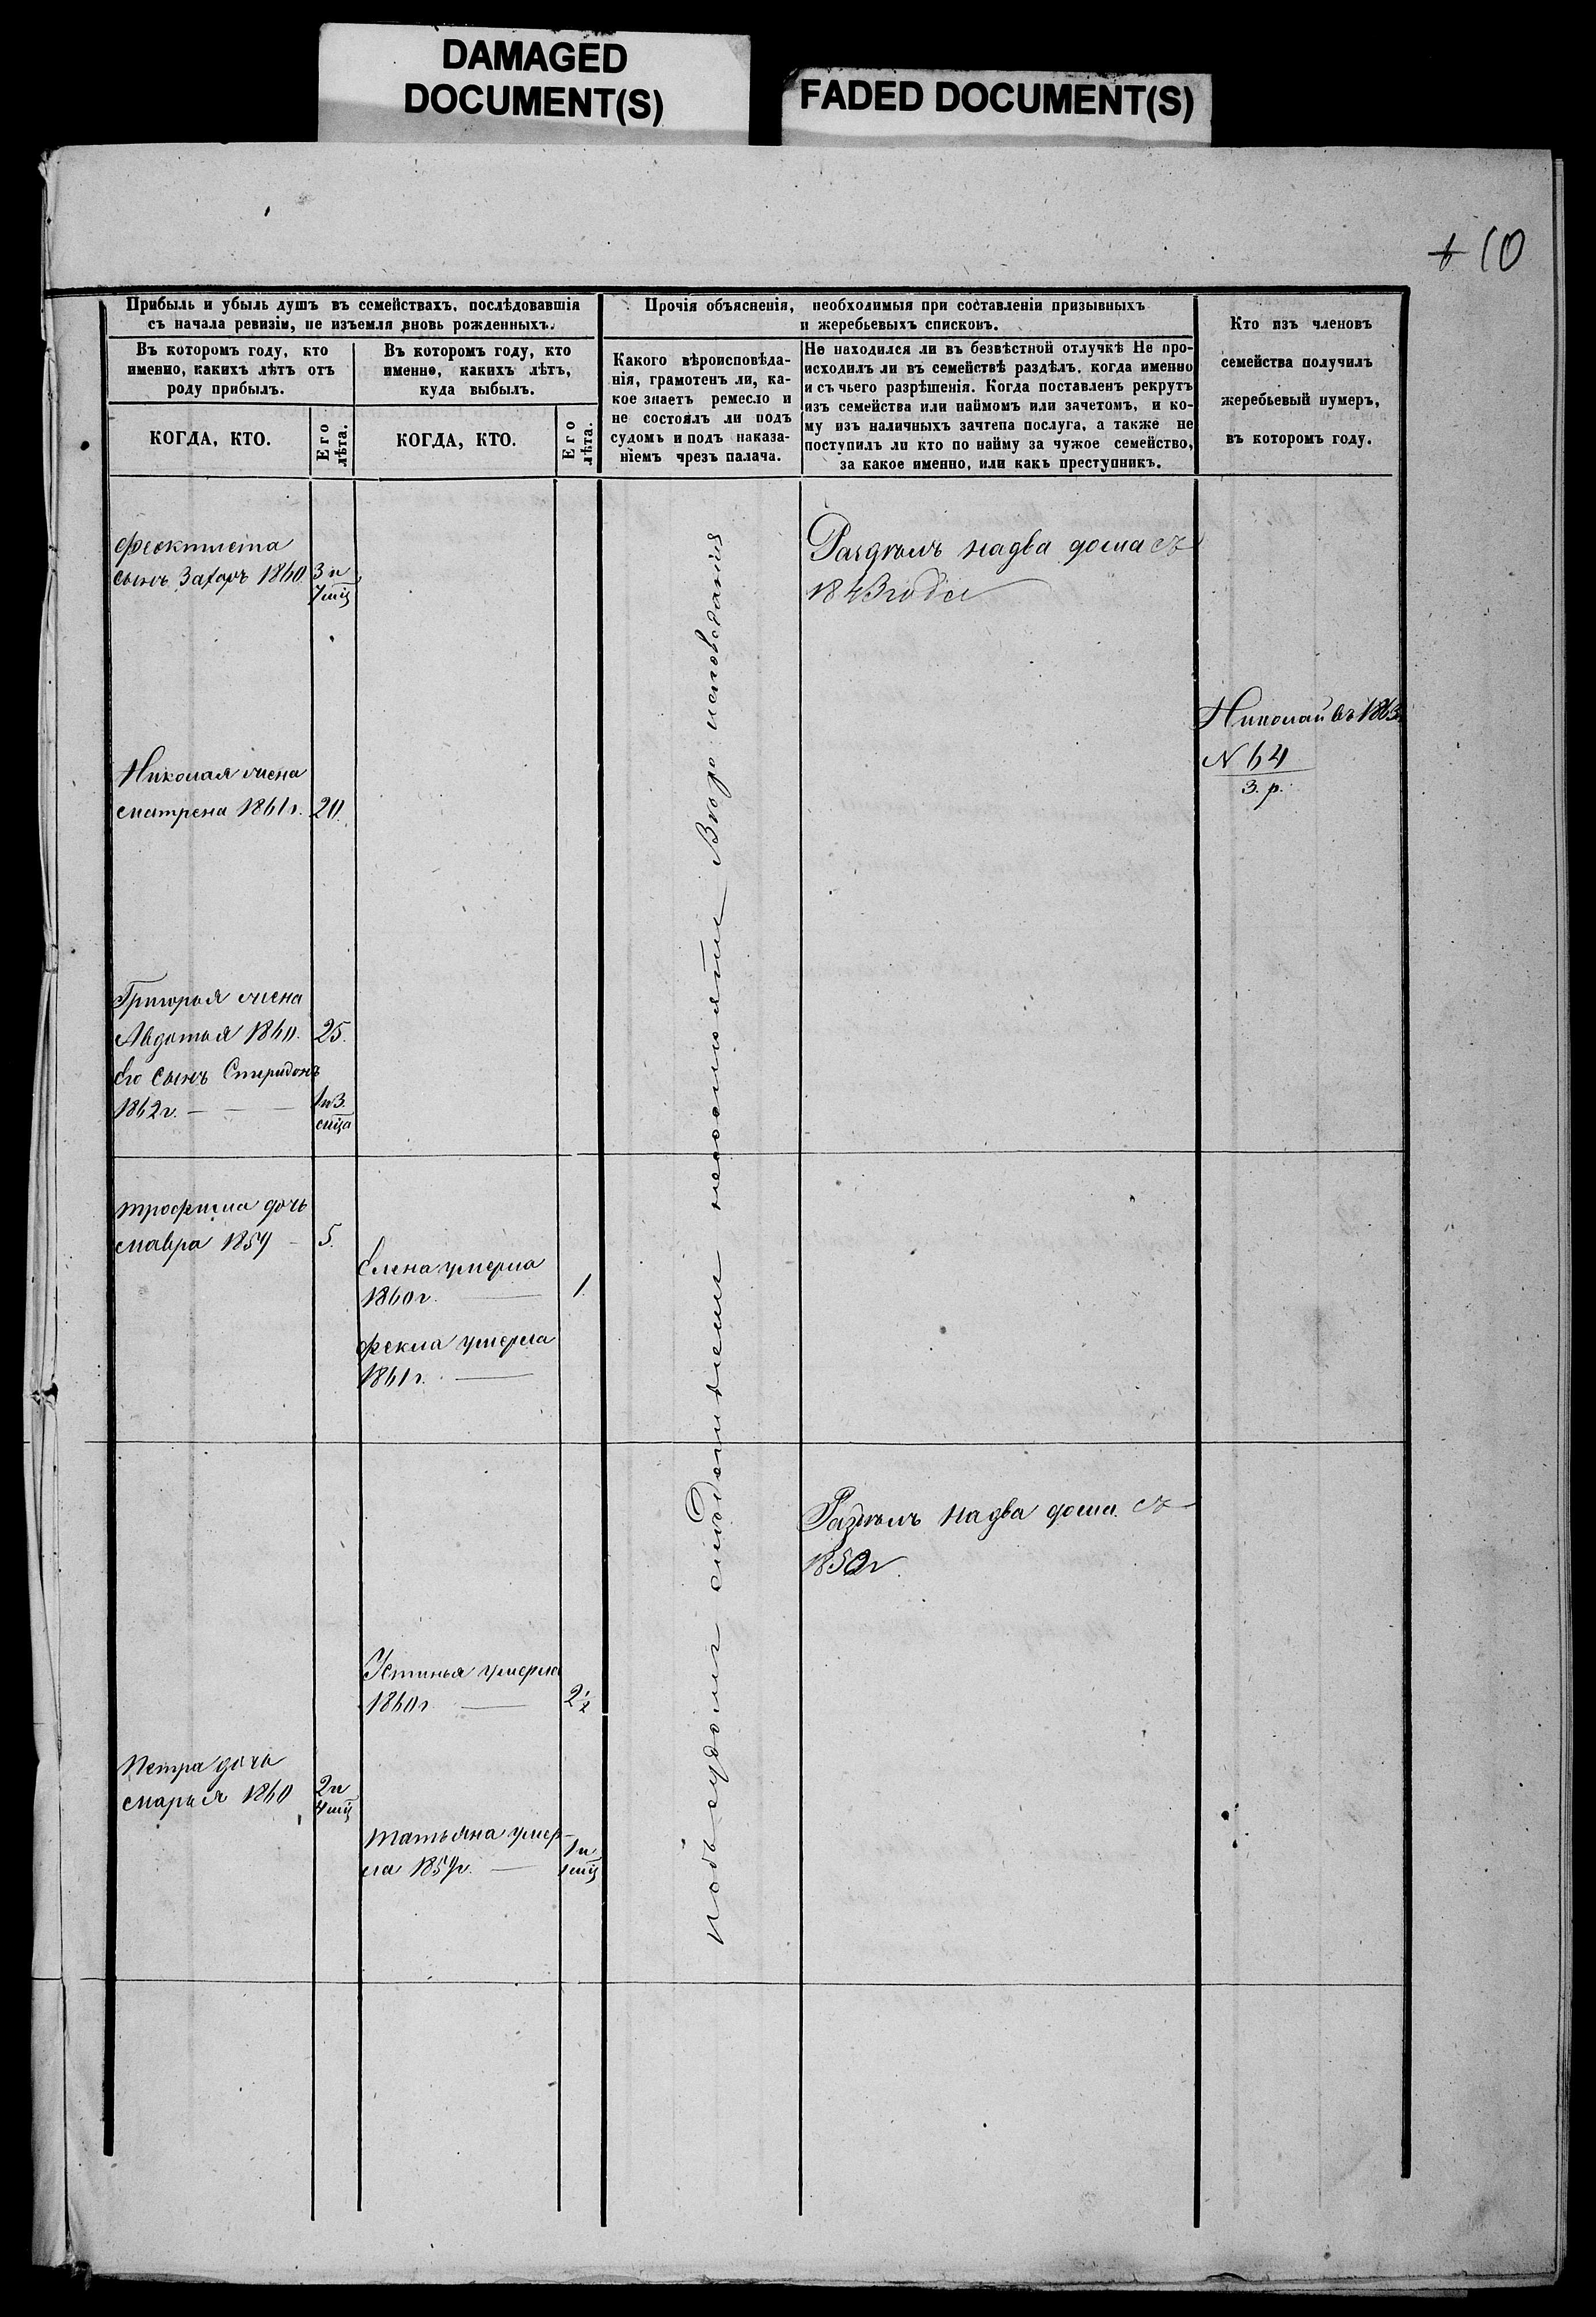 DAMAGED
DOCUMENT(S)
FADED DOCUMENT(S)
6 10
Прибыль и убыль душъ въ семействахъ, послѣдовавшія
съ начала ревизіи, не изъемля вновь рожденныхъ.
Въ которомъ году, кто
именно, какихъ лѣтъ отъ
роду прибылъ.
КОГДА, КТО.
Его
лѣта.
Въ которомъ году, кто
именно, какихъ лѣтъ,
куда выбылъ.
КОГДА, КТО.
Его
лѣта.
Прочія объясненія, необходимыя при составленіи призывныхъ
и жеребьевыхъ списковъ.
Какого вѣроисповѣда-
нія, грамотенъ ли, ка-
кое знаетъ ремесло и
не состоялъ ли подъ
судомъ и подъ наказа-
ніемъ чрезъ палача.
Не находился ли въ безвѣстной отлучкѣ Не про-
исходилъ ли въ семействѣ раздѣлъ, когда именно
и съ чьего разрѣшенія. Когда поставленъ рекрутъ
изъ семейства или наймомъ или зачетомъ, и ко-
му изъ наличныхъ зачтепа послуга, а также не
поступилъ ли кто по найму за чужое семейство,
за какое именно, или какъ преступникъ.
Кто изъ членовъ
семейства получилъ
жеребьевый нумеръ,
въ которомъ году.
Феоктиста
сынъ Захаръ 1860 3 и
7 мц
Николая жена
Матрена 1861 г. 20.
Григорья жена
Авдотья 1860. 25.
Его сынъ Спиридонъ
1862 г. — 1 и 3.
мца
Трофима дочь
Мавра 1859 - 5.
Петра дочь
Марья 1860 2 и
4 мц
Елена умерла
1860 г. — 1.
Фекла умерла
1861 г. —
Устинья умерла
1860 г. — 2 1/2
Татьяна умер-
ла 1859 г. — 1 и
1 мц
подъ судомъ и следствіемъ несостоятъ Вѣроисповеданія
Раздѣлъ на два дома съ
1843 года
Раздѣлъ на два дома съ
1850 г.
Николай въ 1863
N 64
З. р.